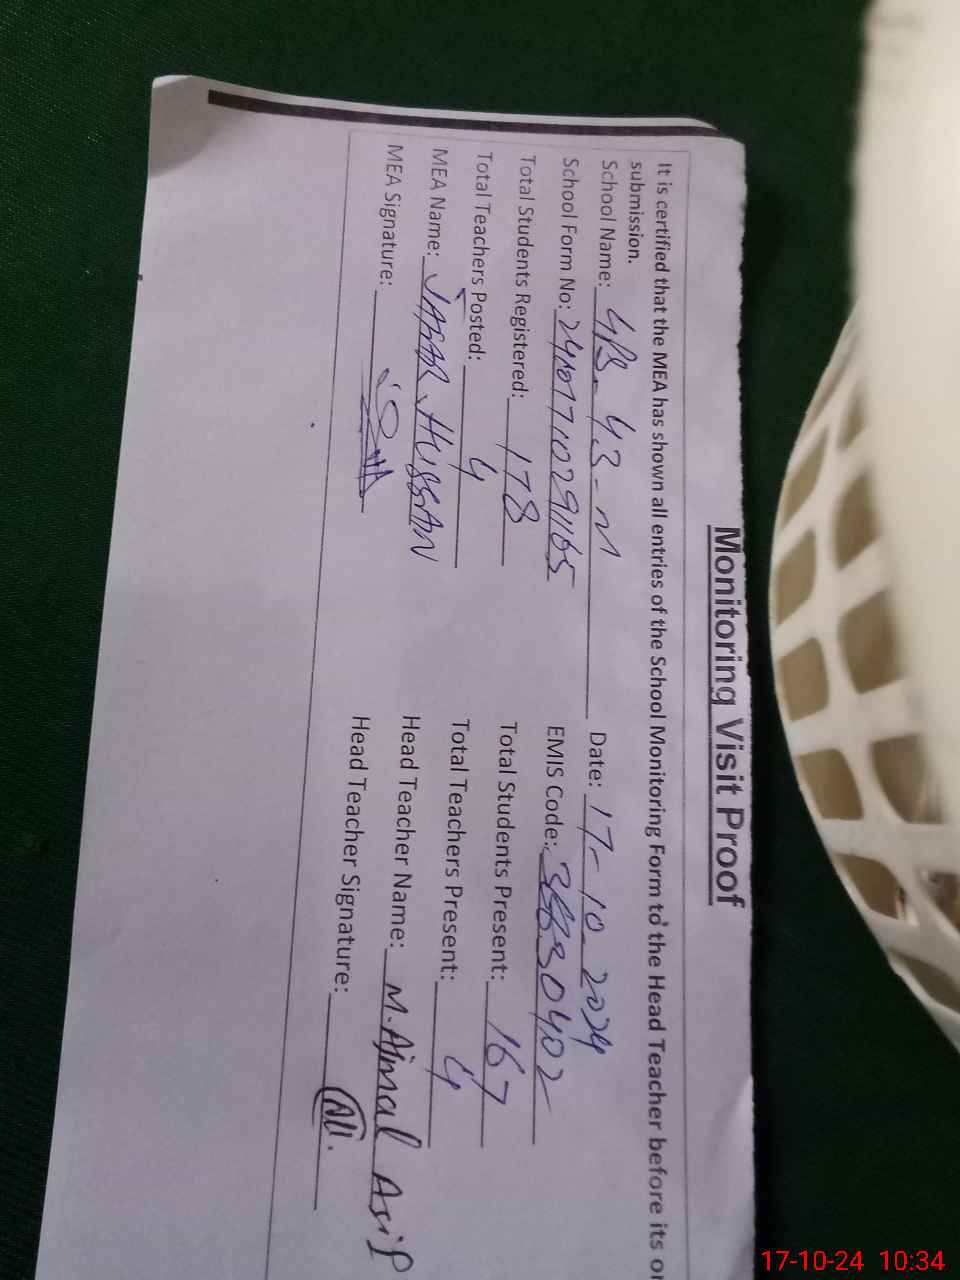 Monitoring Visit Proof
It is certified that the MEA has shown all entries of the School Monitoring Form to the Head Teacher before its
submission.
School Name: Date: 17-10-2024
School Form No: EMIS Code:
Total Students Registered: 178 Total Students Present: 167
Total Teachers Posted: 4 Total Teachers Present: 4
MEA Name: JAFAR HUSSAN Head Teacher Name: M. Ajmal Asif
MEA Signature: Head Teacher Signature:
17-10-24 10:34